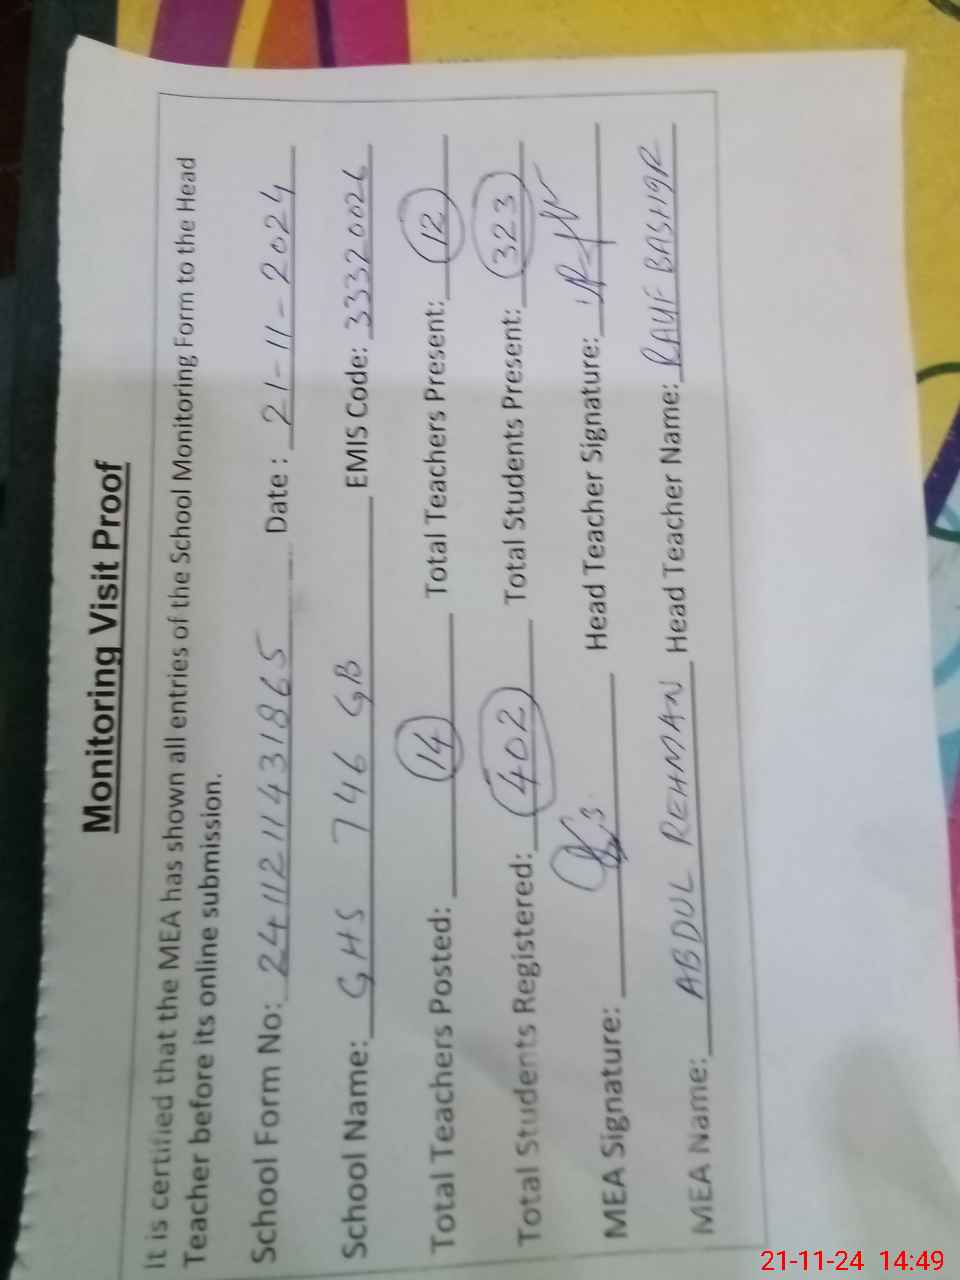 Monitoring Visit Proof
It is certified that the MEA has shown all entries of the School Monitoring Form to the Head
Teacher before its online submission.
School Form No: 2411211431865 Date: 21-11-2024
School Name: GHS 746 GB EMIS Code: 33320026
Total Teachers Posted: 14 Total Teachers Present: 12
Total Students Registered: 402 Total Students Present: 323
MEA Signature: Head Teacher Signature:
MEA Name: ABDUL REHMAN Head Teacher Name: RAUF BASHIR
21-11-24 14:49